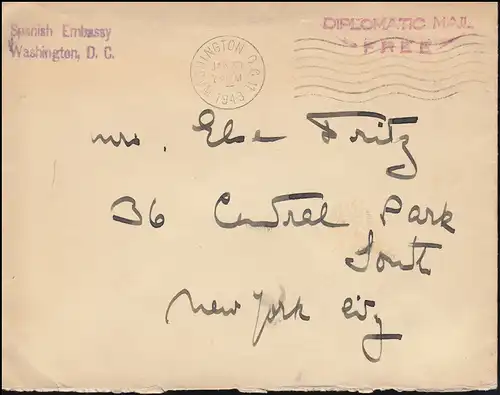 Spanish Embassy
Washington, D. C.
WASHINGTON D.C.
1943
DIPLOMATIC MAIL
FREE
Mrs. Else Fritz
36 Central Park
South
New York City